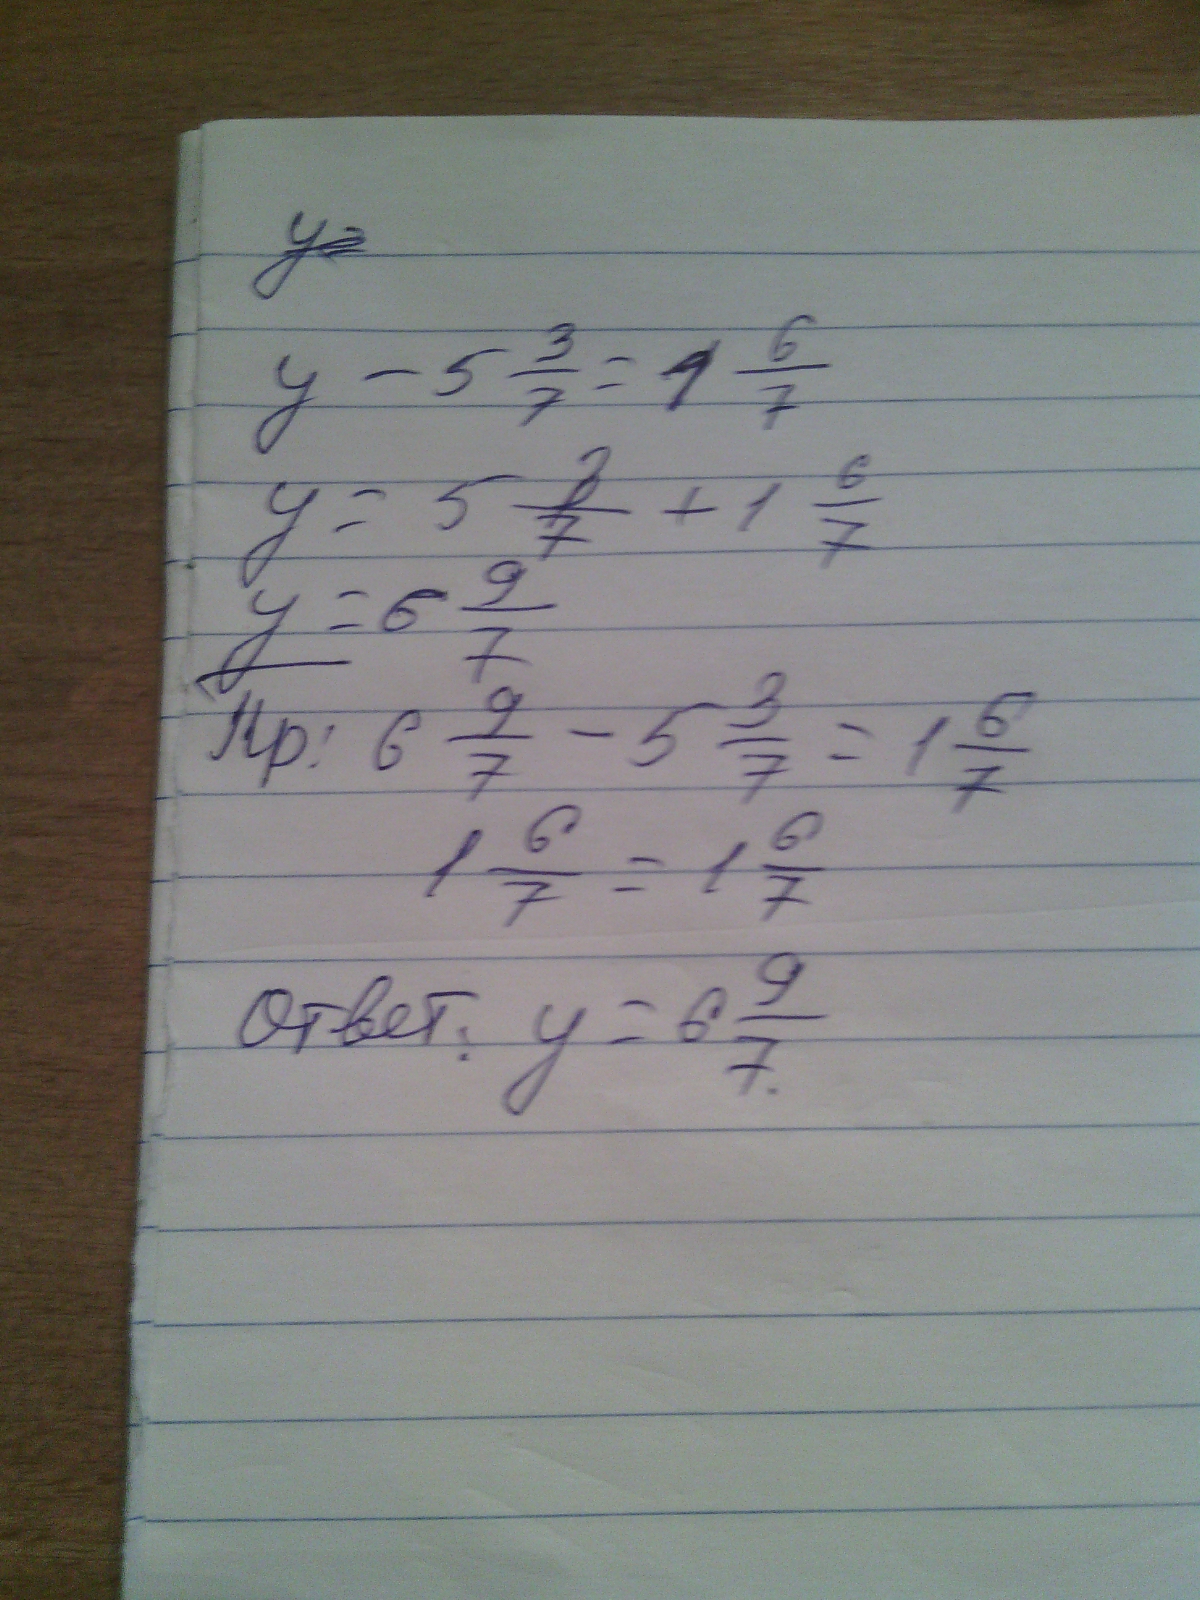 y - 5 3/7 = 1 6/7
y = 5 3/7 + 1 6/7
y = 6 9/7
Пр: 6 9/7 - 5 3/7 = 1 6/7
1 6/7 = 1 6/7
Ответ: y = 6 9/7.